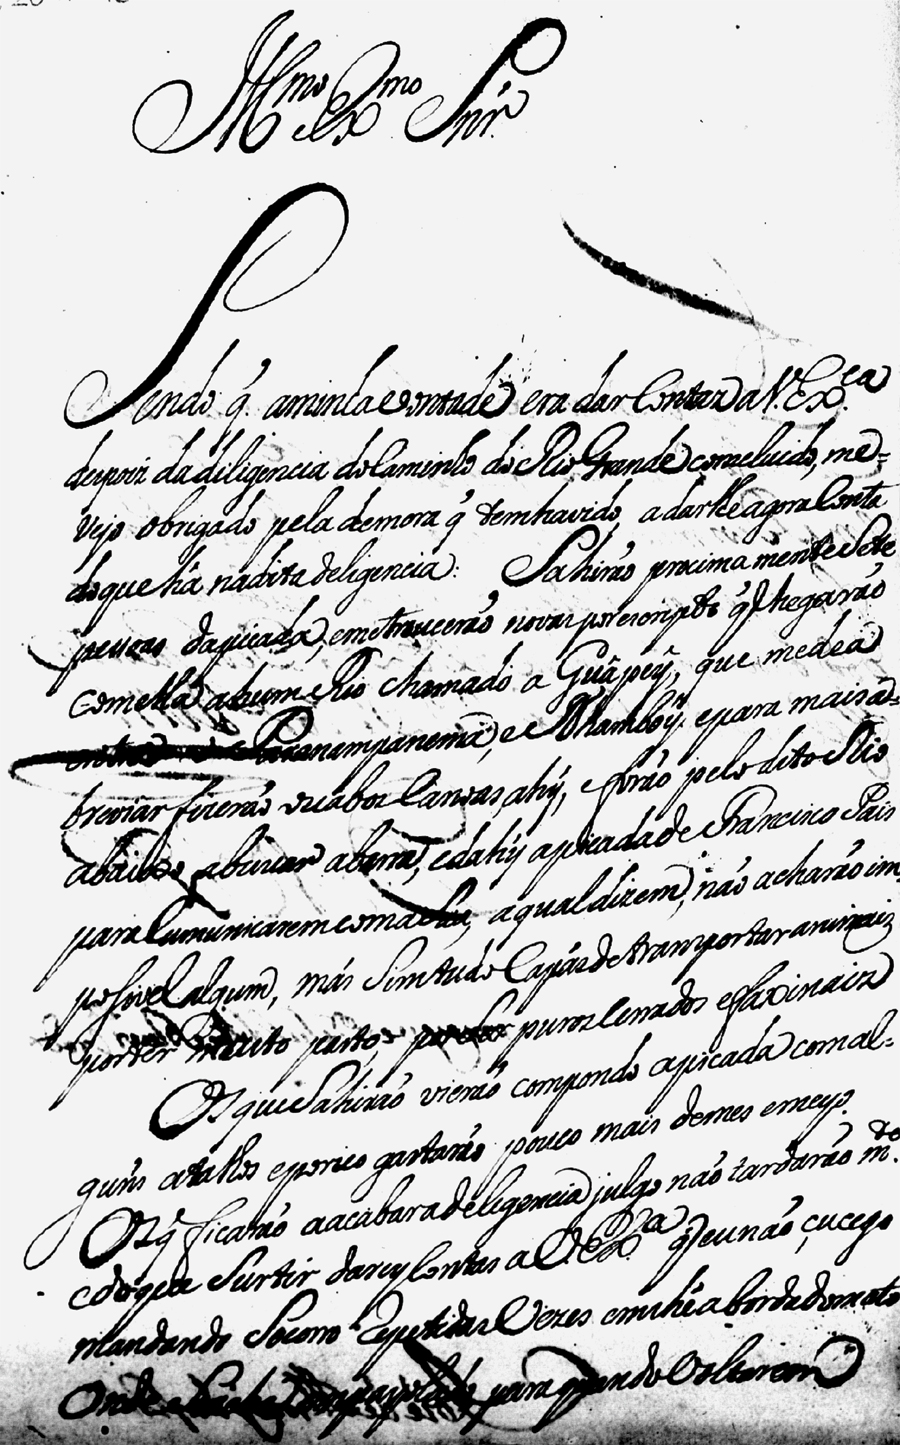 Illmo e Exmo Snr.
Sendo q. aminha vontade era dar Contaz a V. Exca.
depois da diligencia do Caminho do Rio Grande comcluido, me-
vejo obrigado pela demora q̃ tem havido, a dar lhe agora Conta
do que há nadita deligencia: Sahirão procima mente Sete
pessoas da picada, emetroucerão novas por escripto q̃ chegarão
Com ella a hum Rio chamado a Guãpeÿ, que medea
entre o Paranampanema, e Nhamboÿ. epara mais a-
breviar fizerão cinco Canoas ahÿ, e forão pelo dito Rio
abaixo abuscar abarra, e dahÿ apicada de Francisco Pais
para Cumunicarem com a Sua, aqual dizem, não acharão im
posivel algum, más Sim tudo Capás de transportar animaiz
por ter muito pasto, puros Cerrados efaxinaiz
Os que Sahirão vierão compondo apicada com al-
guns atalhos eporico gastarão pouco mais demes emeyo.
Oz q̃ ficarão aacabar adeligencia julgo não tardarão m.to
e do que Surtir darey Contas a V. Exa. q̃ eu não çucego
mandando Socorro Repetidas Vezes emthé abordadomato
Onde para quando Voltarem